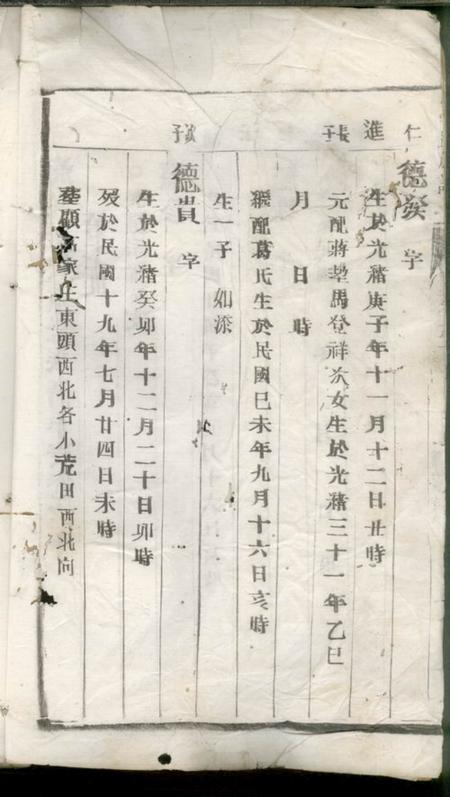 仁進長子
德葵 字
生於光緒庚子年十一月十二日丑時
元配蔣壩馬登祥次女生於光緒三十一年乙巳
月 日 時
繼配葛氏生於民國己未年九月十六日亥時
生一子 如深
次子
德貴 字
生於光緒癸卯年十二月二十日卯時
歿於民國十九年七月廿四日未時
墓顧 家莊東頭西北各小荒田西北向